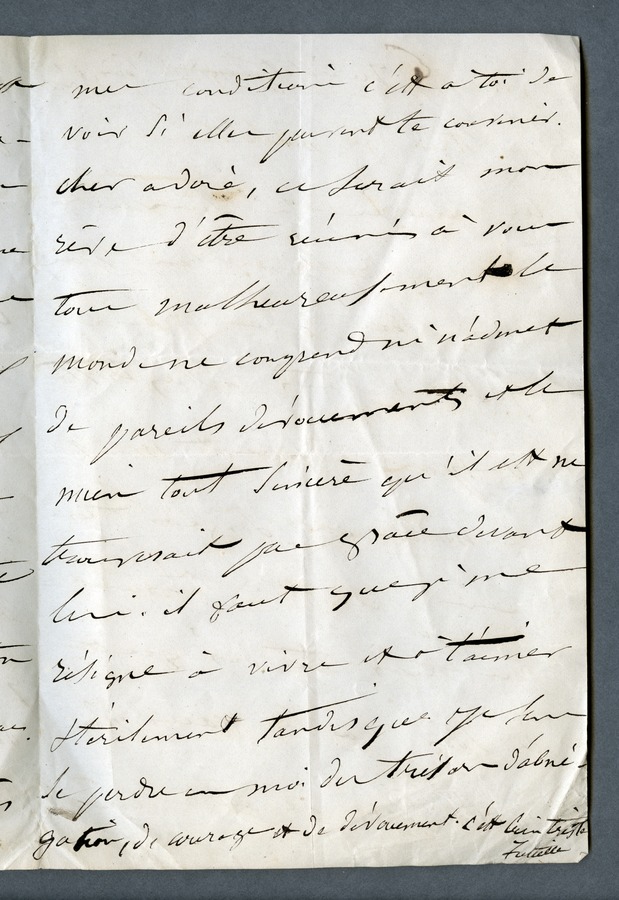 mes conditions c'est à toi de
voir si elles peuvent te convenir.
cher adoré, ce serait mon
rêve d'être réunis à vous
tous malheureusement le
monde ne comprend ni n'admet
de pareils dévouements et le
mien tout sincère qu'il est ne
trouverait pas grâce devant
lui. il faut que je me
résigne à vivre et à t'aimer
stérilement tandis que je sens
se perdre en moi des trésors d'abné-
gation, de courage et de dévouement. c'est bien triste